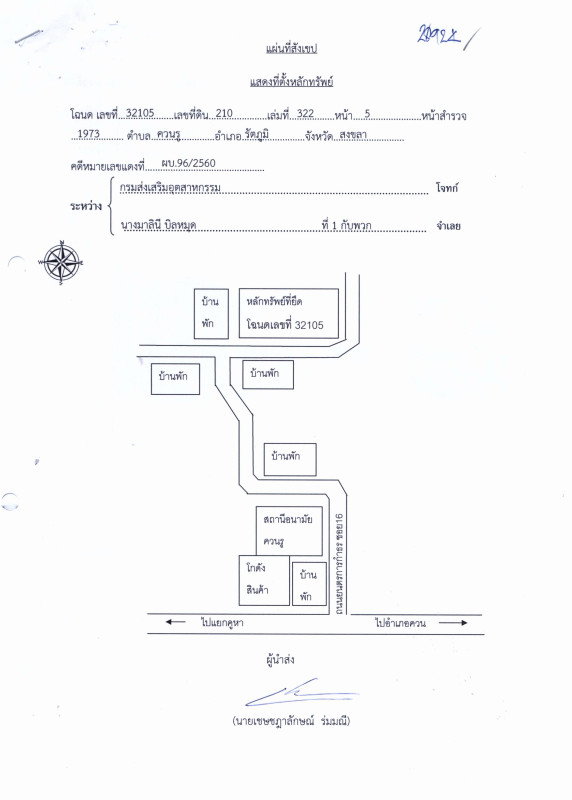 แผ่นที่สังเขป
แสดงที่ตั้งหลักทรัพย์
โฉนด เลขที่...32105......เลขที่ดิน..210..........เล่มที่...322......หน้า....5..............หน้าสำรวจ
...1973.......... ตำบล..ควนรู...........อำเภอ.รัตภูมิ...........จังหวัด..สงขลา..............
คดีหมายเลขแดงที่.....ผบ.96/2560................
ระหว่าง
กรมส่งเสริมอุตสาหกรรม.......... โจทก์
นางมาลินี บิลหมุด.......... ที่ 1 กับพวก .......... จำเลย
N
W E
S
บ้าน
พัก
หลักทรัพย์ที่ยึด
โฉนดเลขที่ 32105
บ้านพัก
บ้านพัก
บ้านพัก
สถานีอนามัย
ควนรู
โกดัง
สินค้า
บ้าน
พัก
ถนนยนตรการกำธร ซอย16
ไปแยกคูหา
ไปอำเภอควน
ผู้นำส่ง
(นายเชษฐาลักษณ์ ร่มมณี)